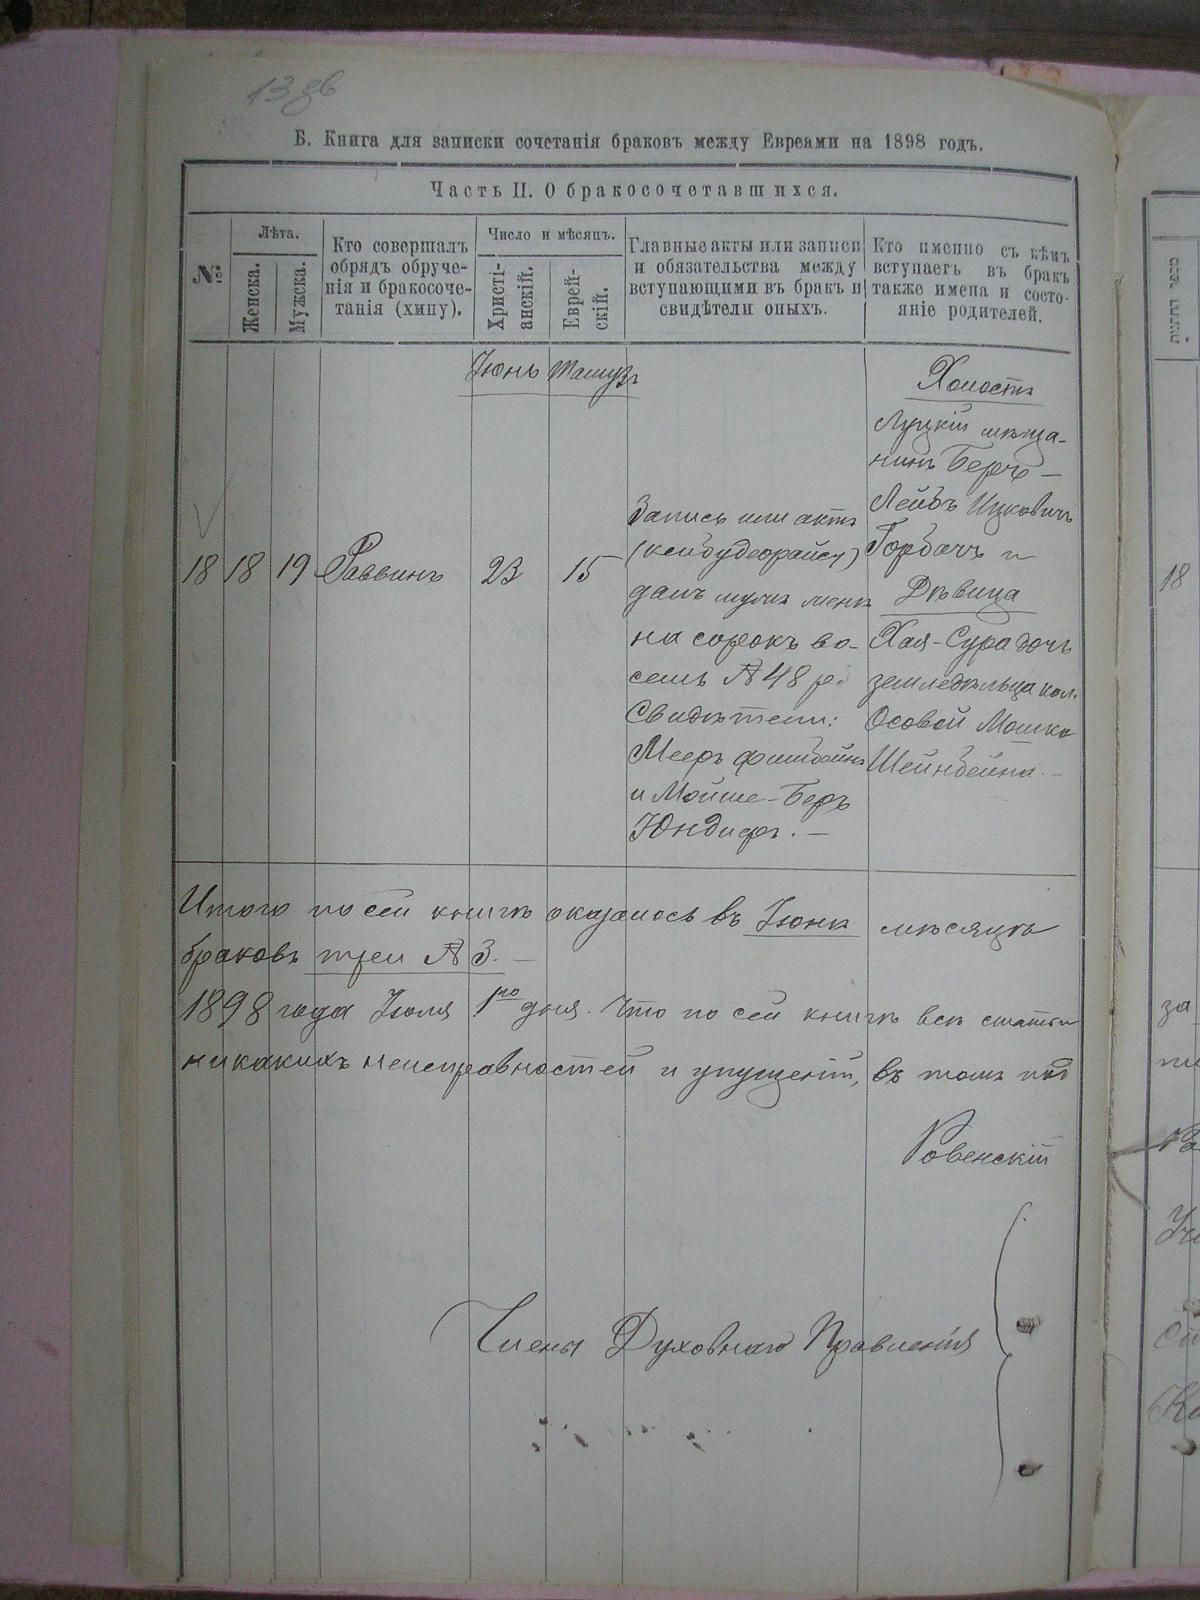 13 дв
Б. Книга для записки сочетанія браковъ между Евреами на 1898 годъ.
Часть II. О бракосочетавшихся.
№№
Лѣта.
Женска.
Мужска.
Кто совершалъ
обрядъ обруче-
нія и бракосоче-
танія (хипу).
Число и мѣсяцъ.
Христі-
анскій.
Еврей-
скій.
Главные акты или записи
и обязательства между
вступающими въ бракъ и
свидѣтели оныхъ.
Кто именно съ кѣмъ
вступаетъ въ бракъ
также имена и состо-
яніе родителей.
Іюнь Тамузъ
18 18 19 Раввинъ 23 15
Запись или актъ
данъ мужемъ женѣ
на сорокъ во-
семь 48 р.
Свидѣтели:
Мееръ Фишбейнъ
и Мойше-Беръ
Холостъ
Луцкій мѣща-
нинъ Беръ-
Лейбъ Ицковичъ
Горбачъ и
Дѣвица
Хая-Сура дочь
земледѣльца кол.
Осовой Мошка
Шейнбейна.—
Итого по сей книгѣ оказалось въ Іюнѣ мѣсяцѣ
браковъ три 3.—
1898 года Іюля 1го дня. Что по сей книгѣ всѣ статьи
никакихъ неисправностей и упущеній, въ томъ под
Ровенскій
Члены Духовнаго Правленія
18
за